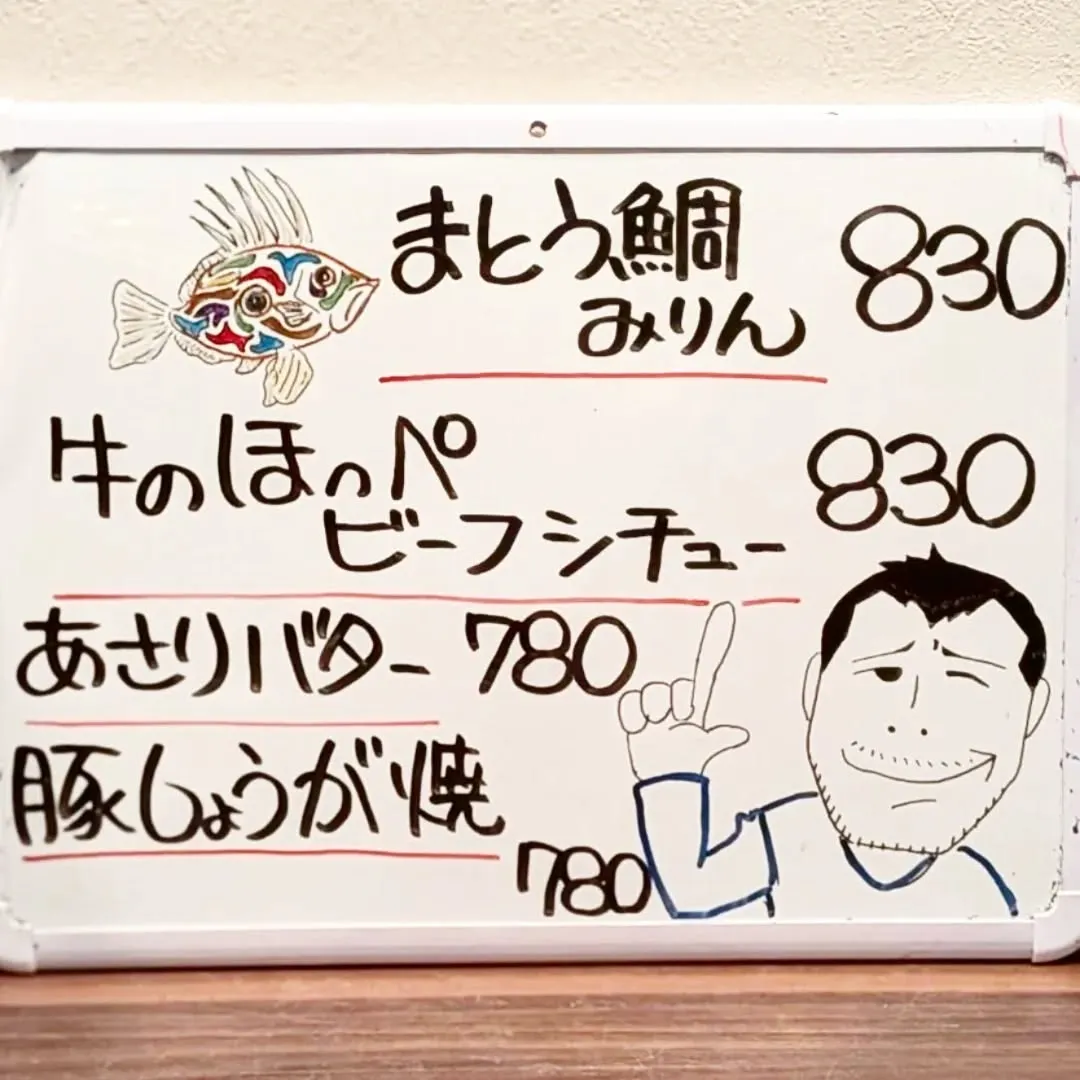 まとう鯛 830
みりん
牛のほっペ 830
ビーフシチュー
あさりバター 780
豚しょうが焼
780